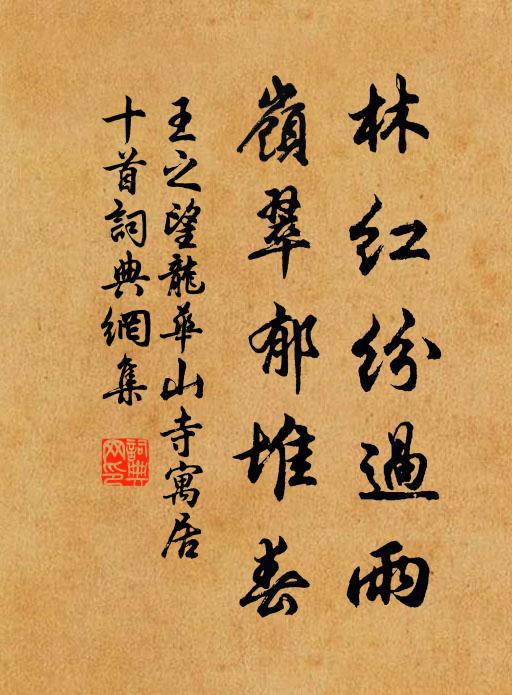 林红纷過雨
嶺翠郁堆春
王之望龍華山寺寓居
十首詞典網集
詞典网印